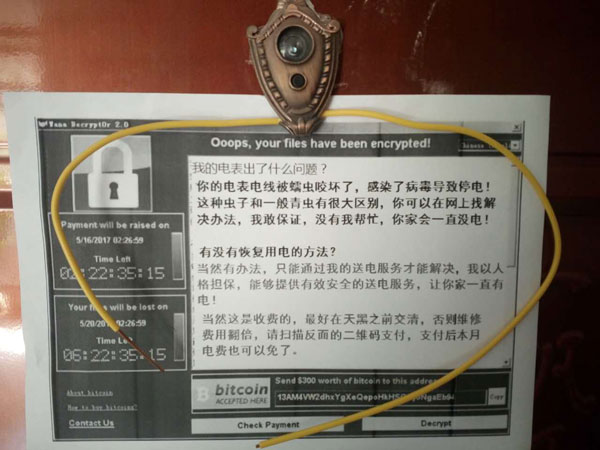 Wana Decrypt0r 2.0
Ooops, your files have been encrypted!
我的电表出了什么问题？
你的电表电线被蠕虫咬坏了，感染了病毒导致停电！
这种虫子和一般青虫有很大区别，你可以在网上找解
决办法，我敢保证，没有我帮忙，你家会一直没电！
有没有恢复用电的方法？
当然有办法，只能通过我的送电服务才能解决，我以人
格担保，能够提供有效安全的送电服务，让你家一直有
电！
当然这是收费的，最好在天黑之前交清，否则维修
费用翻倍，请扫描反面的二维码支付，支付后本月
电费也可以免了。
Payment will be raised on
5/16/2017 02:26:59
Time Left
02:22:35:15
Your files will be lost on
5/20/2017 02:26:59
Time Left
06:22:35:15
About bitcoin
How to buy bitcoins?
Contact Us
bitcoin
ACCEPTED HERE
Send $300 worth of bitcoin to this address
Copy
Check Payment
Decrypt